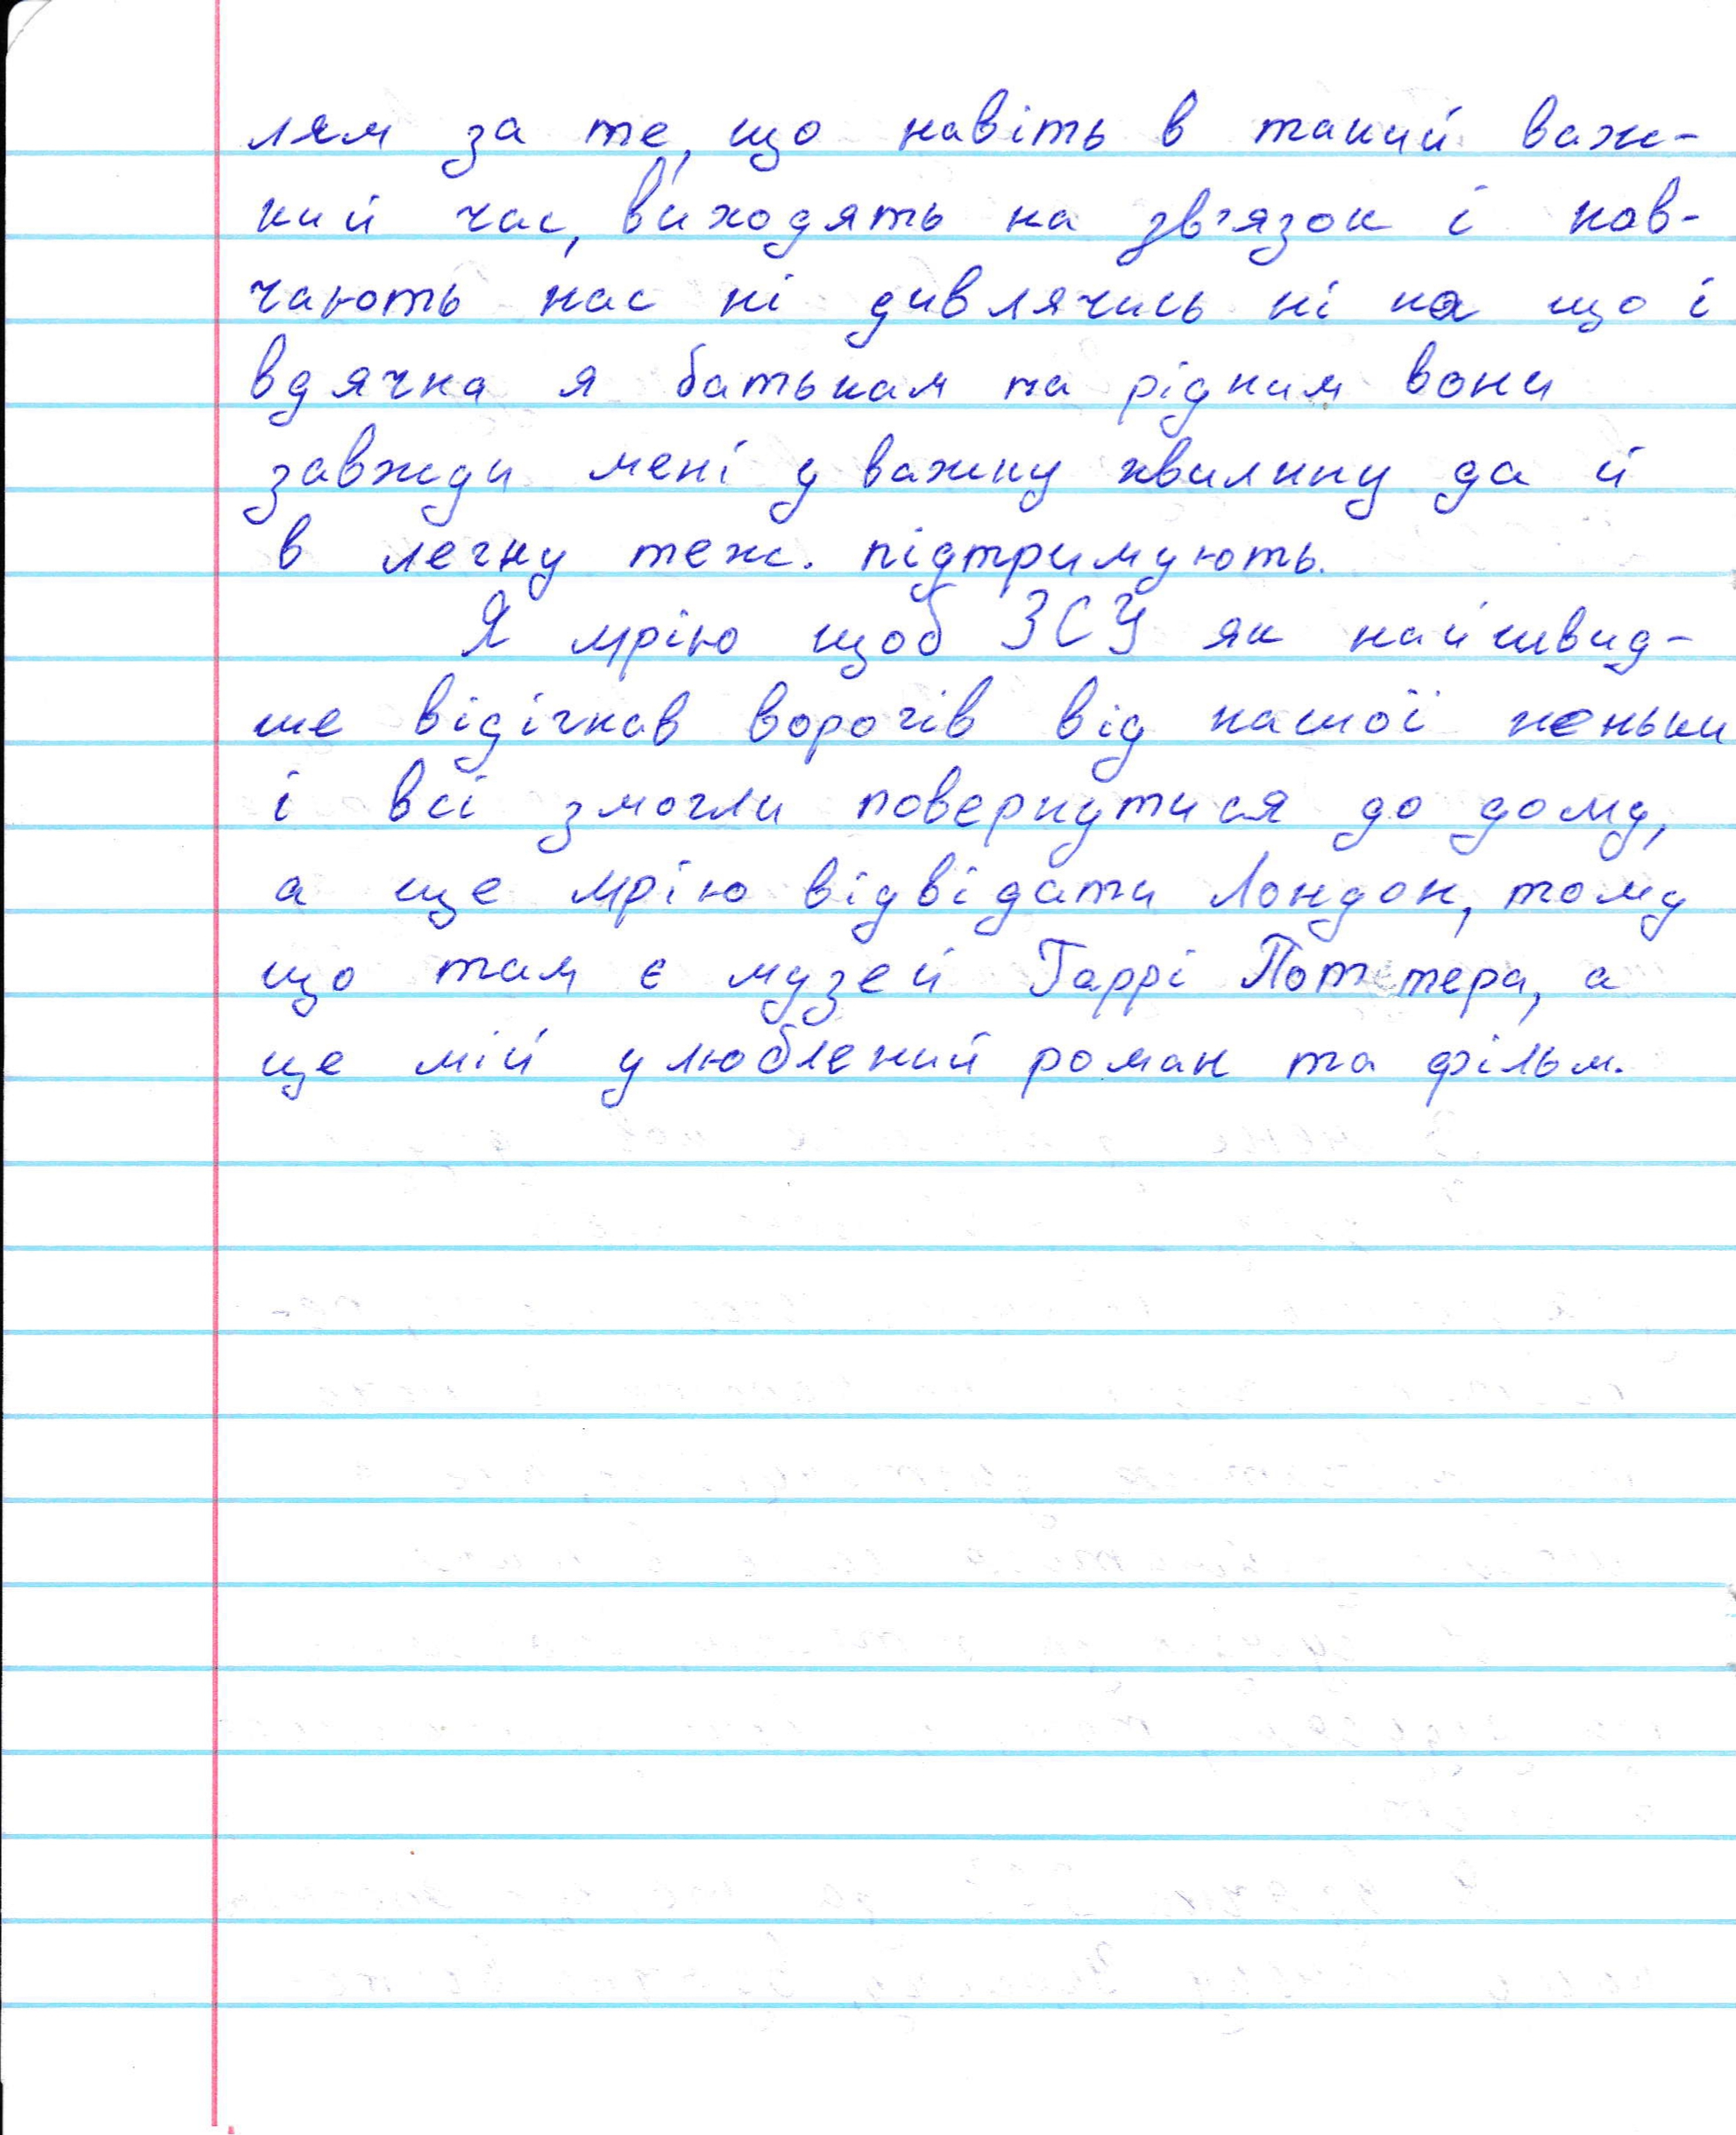 лям за те, що навіть в такий важ-
кий час, виходять на зв'язок і нав-
чають нас ні дивлячись ні на що і
вдячна я батькам та рідним вони
завжди мені у важку хвилину да й
в легку теж. підтримують.
Я мрію щоб ЗСУ як найшвид-
ше відігнав ворогів від нашої неньки
і всі змогли повернутися до дому,
а ще мрію відвідати Лондон, тому
що там є музей Гаррі Поттера, а
це мій улюблений роман та фільм.